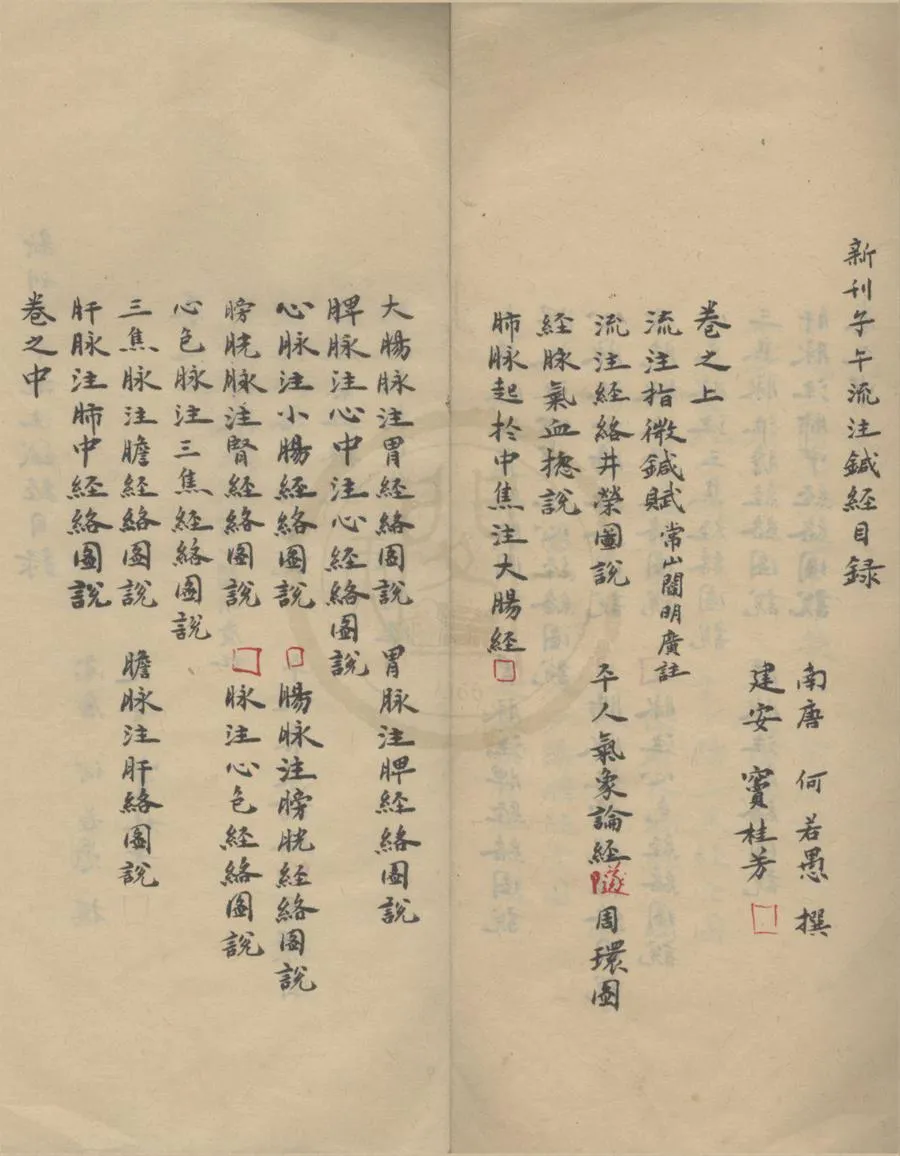 新刊子午流注鍼経目録
南唐 何若愚 撰
建安 竇桂芳 □
卷之上
流注指微鍼賦 常山閻明廣註
流注経絡井榮圖說 平人氣象論経隧周環圖
経脉氣血揔說
肺脉起於中焦注大腸経□
大腸脉注胃経絡圖說 胃脉注脾経絡圖說
脾脉注心中注心経絡圖說
心脉注小腸経絡圖說 □腸脉注膀胱経絡圖說
膀胱脉注腎経絡圖說 □脉注心包経絡圖說
心包脉注三焦経絡圖說
三焦脉注膽経絡圖說 膽脉注肝絡圖說
肝脉注肺中経絡圖說
卷之中